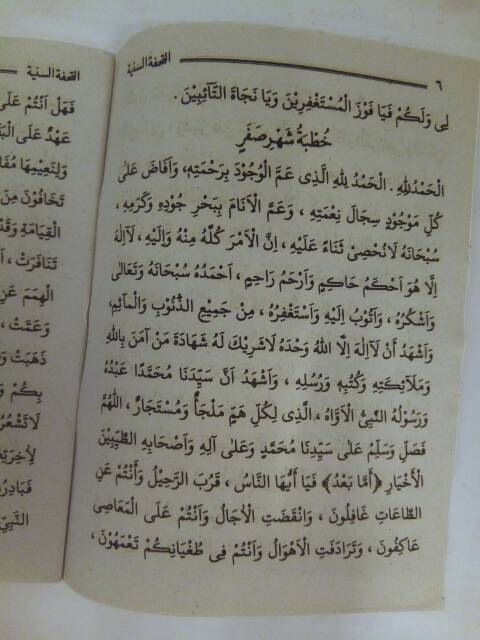 ٦ التحفة السنية
لِى وَلَكُمْ فَيَا فَوْزَ الْمُسْتَغْفِرِيْنَ وَيَا نَجَاةَ التَّآئِبِيْنَ .
خُطْبَةُ شَهْرِ صَفَرٍ
الْحَمْدُ لِلّٰهِ . الْحَمْدُ لِلّٰهِ الَّذِى عَمَّ الْوُجُوْدَ بِرَحْمَتِهِ، وَاَفَاضَ عَلَى
كُلِّ مَوْجُوْدٍ سِجَالَ نِعْمَتِهِ ، وَعَمَّ الْاَنَامَ بِبَحْرِ جُوْدِهِ وَكَرَمِهِ ،
سُبْحَانَهُ لَانُحْصِىْ ثَنَاءً عَلَيْهِ ، اِنَّ الْاَمْرَ كُلَّهُ مِنْهُ وَاِلَيْهِ ، لَآاِلٰهَ
اِلَّا هُوَ اَحْكَمُ حَاكِمٍ وَاَرْحَمُ رَاحِمٍ ، اَحْمَدُهُ سُبْحَانَهُ وَتَعَالَى
وَاَشْكُرُهُ ، وَاَتُوْبُ اِلَيْهِ وَاَسْتَغْفِرُهُ ، مِنْ جَمِيْعِ الذُّنُوْبِ وَالْمَآثِمِ،
وَاَشْهَدُ اَنْ لَآاِلٰهَ اِلَّا اللهُ وَحْدَهُ لَاشَرِيْكَ لَهُ شَهَادَةَ مَنْ آمَنَ بِاللهِ
وَمَلَآئِكَتِهِ وَكُتُبِهِ وَرُسُلِهِ ، وَاَشْهَدُ اَنَّ سَيِّدَنَا مُحَمَّدًا عَبْدُهُ
وَرَسُوْلُهُ النَّبِىُّ الْاَوَّاهُ ، الَّذِى لِكُلِّ هَمٍّ مَلْجَأٌ وَمُسْتَجَارٌ ، اَللّٰهُمَّ
فَصَلِّ وَسَلِّمْ عَلَى سَيِّدِنَا مُحَمَّدٍ وَعَلَى آلِهِ وَاَصْحَابِهِ الطَّيِّبِيْنَ
الْاَخْيَارِ ﴿اَمَّا بَعْدُ﴾ فَيَا اَيُّهَا النَّاسُ ، قَرُبَ الرَّحِيْلُ وَأَنْتُمْ عَنِ
الطَّاعَاتِ غَافِلُوْنَ ، وَانْقَضَتِ الْاٰجَالُ وَاَنْتُمْ عَلَى الْمَعَاصِى
عَاكِفُوْنَ ، وَتَرَادَفَتِ الْاَهْوَالُ وَاَنْتُمْ فِى طُغْيَانِكُمْ تَعْمَهُوْنَ ،
التحفة السنية
فَهَلْ اَنْتُمْ عَلَى
عَهْدٌ عَلَى
وَلِنَعِيْمِهَا
تَخَافُوْنَ مِنْ
الْقِيَامَةِ
تَنَافَرَتْ ،
الْهِمَمَ عَنْ
وَعَمَّتْ ،
ذَهَبَتْ
بِكُمْ
لَاتَشْعُرُ
فَبَادِرُ
النَّبِىِّ